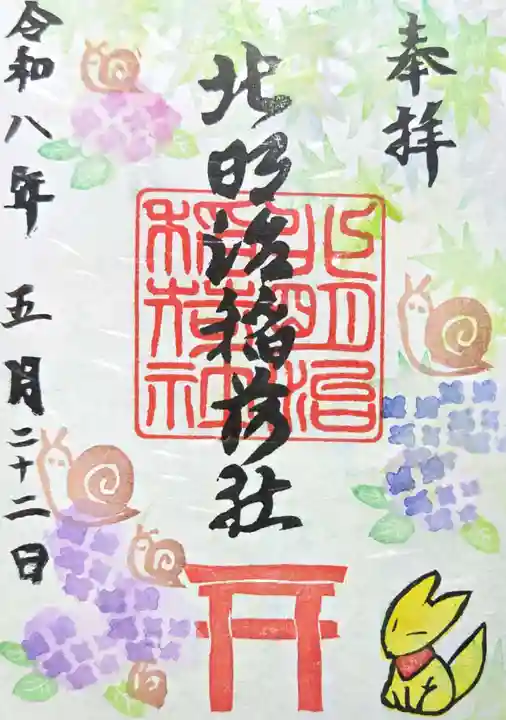 奉拝
北明治稲荷社
北明治
稲荷社
令和八年 五月二十二日